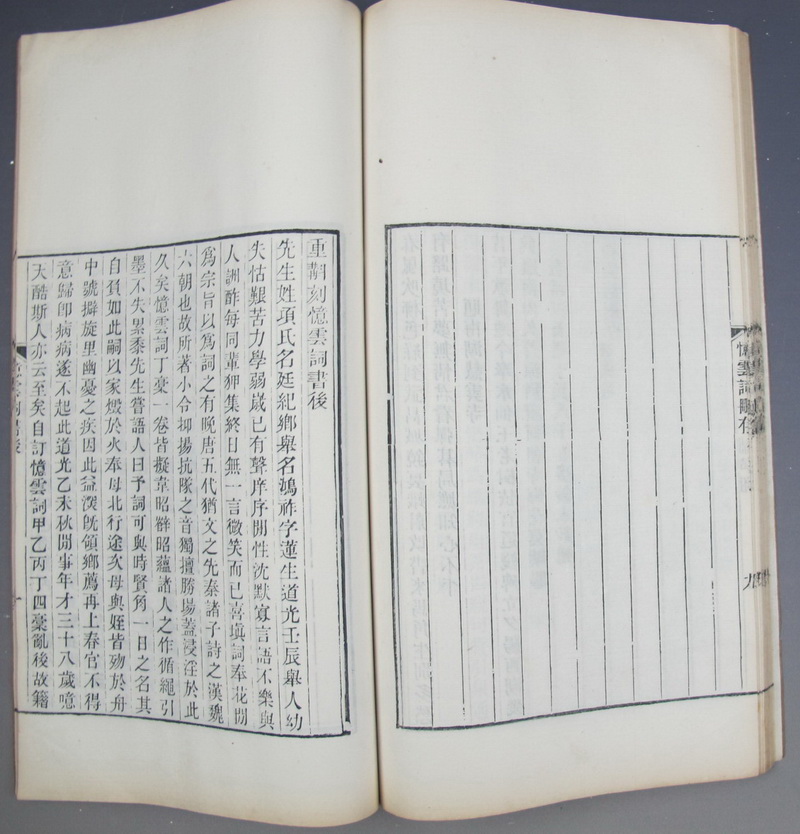 憶雲詞賸存
九
重斠刻憶雲詞書後
先生姓項氏名廷紀鄉舉名鴻祚字蓮生道光壬辰舉人幼
失怙艱苦力學弱歲已有聲庠序閒性沈默寡言語不樂與
人詶酢每同輩狎集終日無一言微笑而已喜塡詞奉花閒
爲宗旨以爲詞之有晚唐五代猶文之先秦諸子詩之漢魏
六朝也故所著小令抑揚抗隊之音獨擅勝場蓋浸淫於此
久矣憶雲詞丁稾一卷皆擬韋昭辥昭蘊諸人之作循繩引
墨不失累黍先生嘗語人曰予詞可與時賢角一日之名其
自負如此嗣以家燬於火奉母北行途次母與姪皆歿於舟
中號擗旋里幽憂之疾因此益濮旣領鄉薦再上春官不得
意歸卽病病遂不起此道光乙未秋閒事年才三十八歲噫
天酷斯人亦云至矣自訂憶雲詞甲乙丙丁四稾亂後故籍
憶雲詞書後